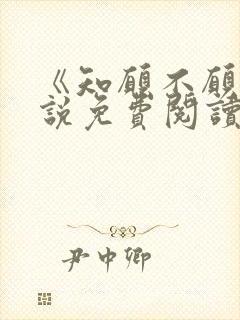 《知願不願
說免費閱讀
尹中卿